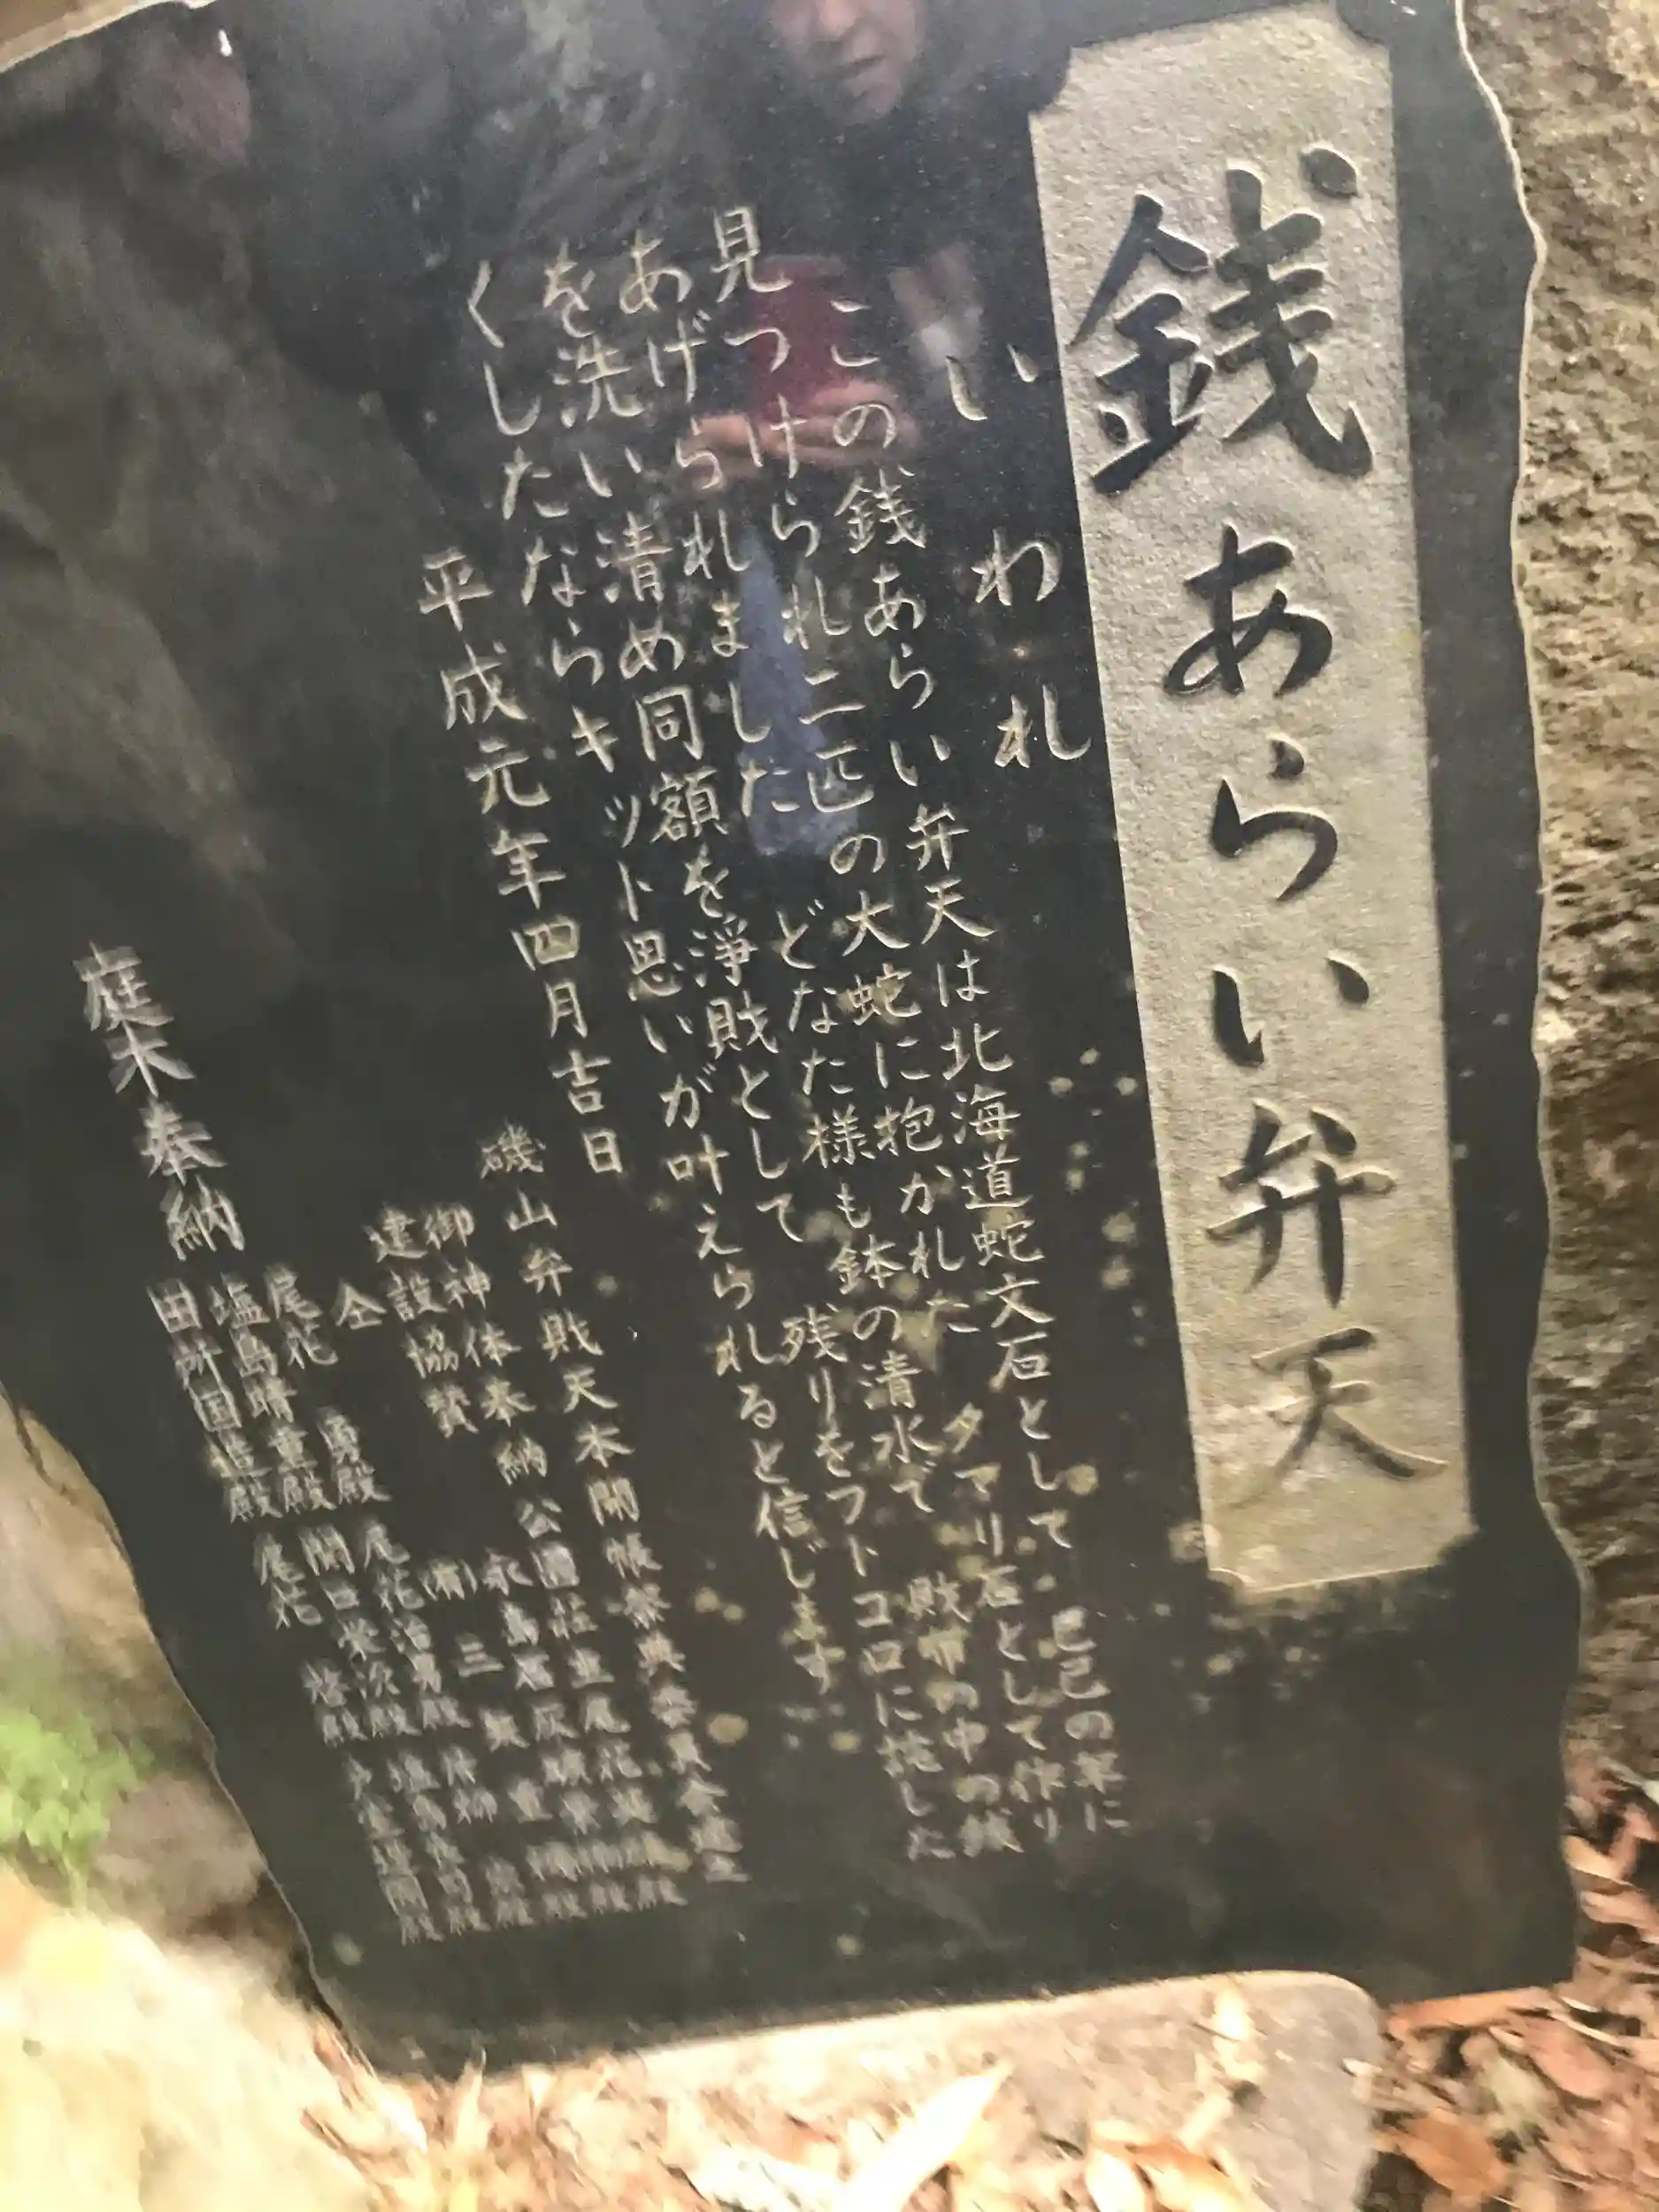 銭あらい弁天
いわれ
この銭あらい弁天は北海道蛇文石として 己巳の年に
見つけられ二匹の大蛇に抱かれた タマリ石として作り
あげられました どなた様も鉢の清水で 財布の中の銭
を洗い清め同額を浄財として 残りをフトコロに
くしたならキット思いが叶えられると信じます
平成元年四月吉日
磯山弁財天本開帳祭典委員会
御神体奉納 公園荘主 尾花
建設協賛 永島石灰
仝 (有)三
庭木奉納 尾花 勇殿 尾花治男殿
塩島晴重殿 関口栄次殿
田所国造殿 尾花